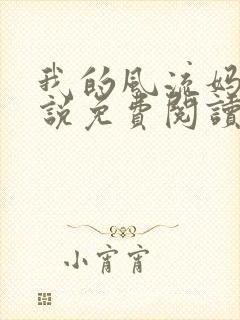 我的风流妈
說免費閱讀
小宵宵